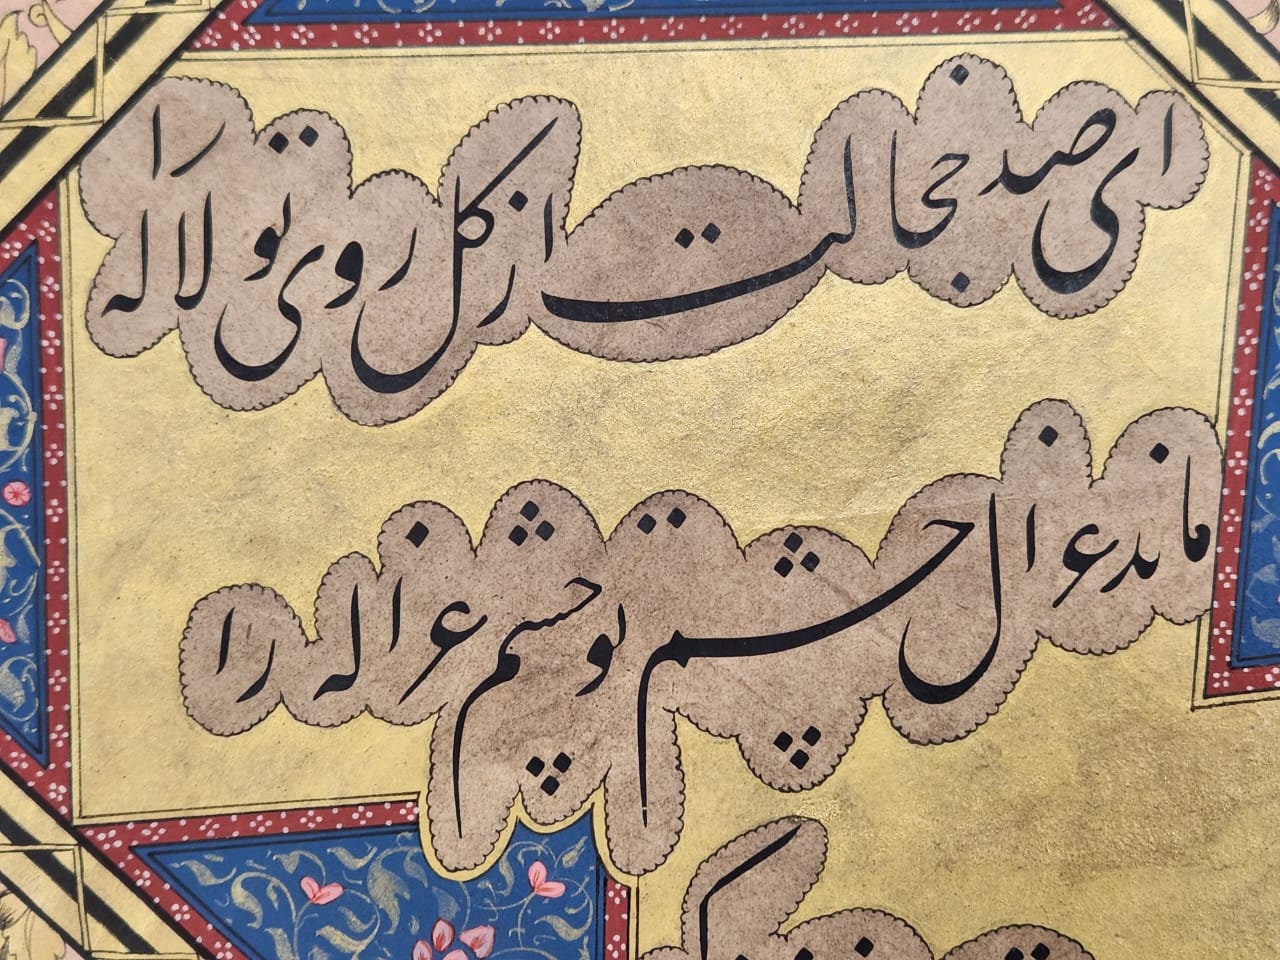 ای صد خجالت از گل روی تو لاله را
ماند غزال چشم تو چشم غزاله را